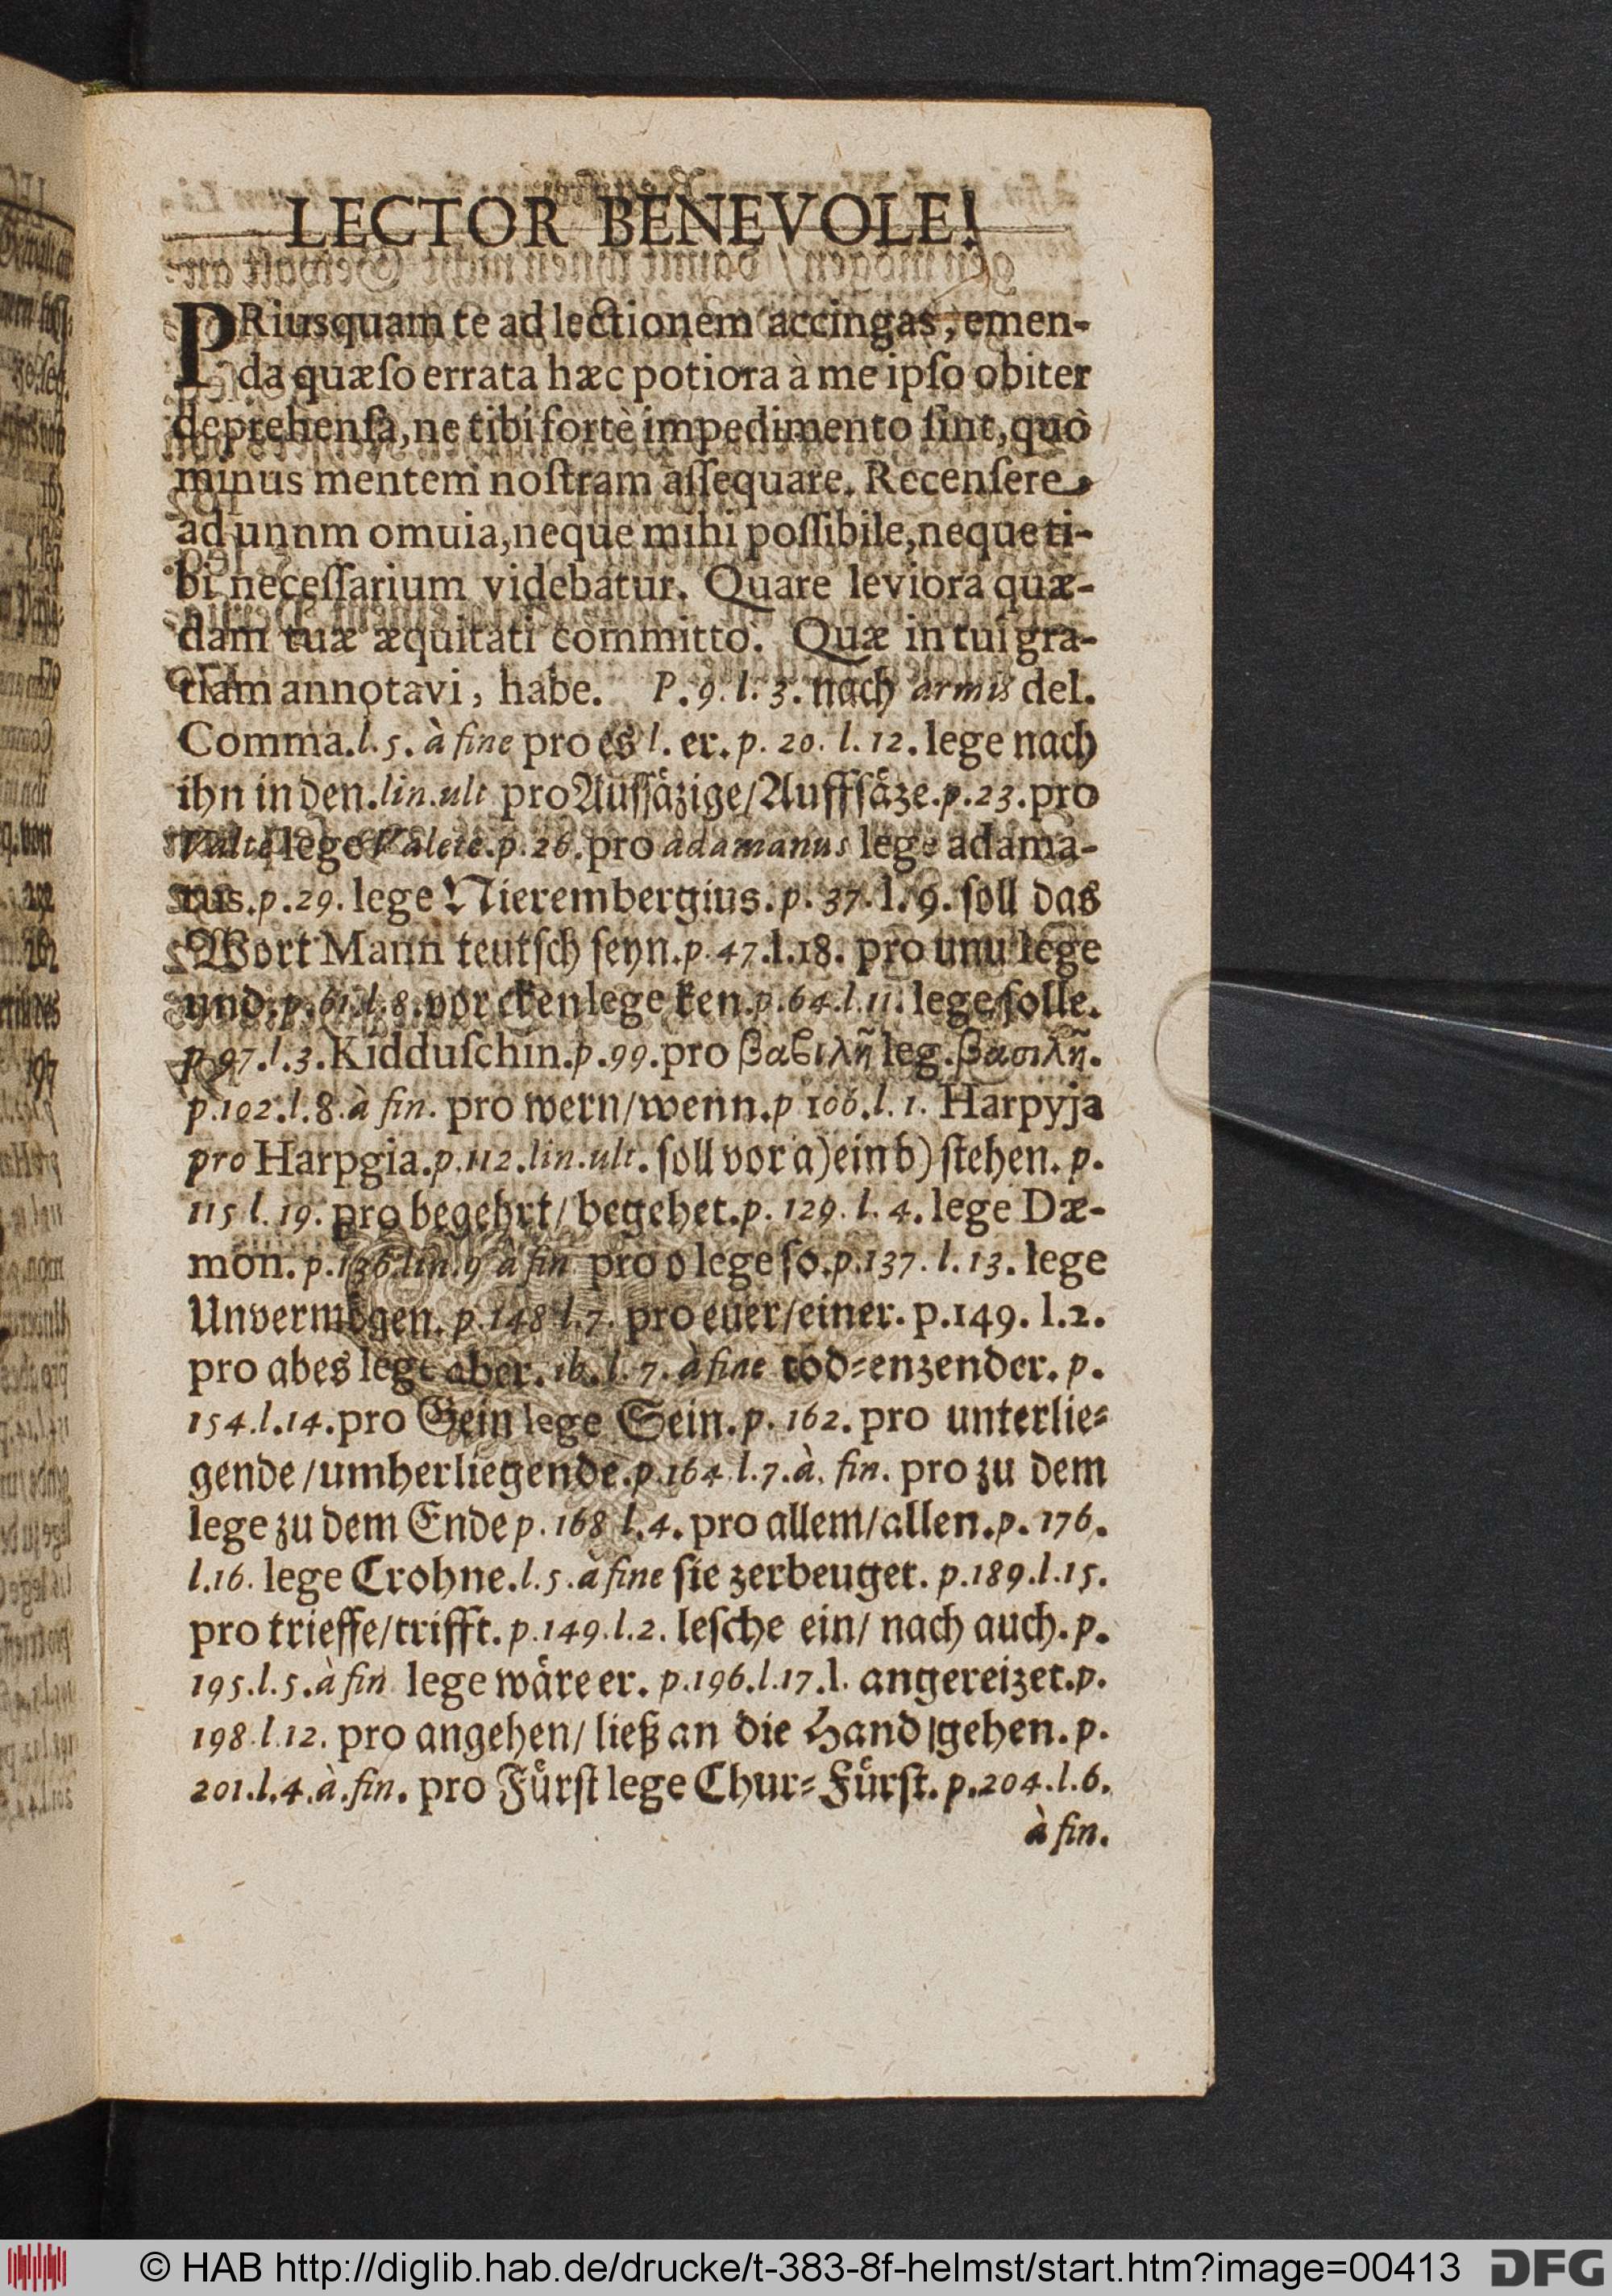 LECTOR BENEVOLE!
PRiusquam te ad lectionem accingas, emen-
da quæſo errata hæc potiora à me ipſo obiter
deprehenſa, ne tibi fortè impedimento ſint, quò
minus mentem noſtram aſſequare. Recenſere
ad unnm omuia, neque mihi poſſibile, neque ti-
bi neceſſarium videbatur. Quare leviora quæ-
dam tuæ æquitati committo. Quæ in tui gra-
tiam annotavi, habe. P. 9. l. 3. nach armis del.
Comma. l. 5. à fine pro es l. er. p. 20. l. 12. lege nach
ihn in den. lin. ult pro Auſſäzige/Auffſäze. p. 23. pro
Valte lege Valete. p. 26. pro adamanus lege adama-
tus. p. 29. lege Nierembergius. p. 37. l. 9. ſoll das
Wort Mann teutſch ſeyn. p. 47. l. 18. pro unu lege
und. p. 61. l. 8. vor cken lege ken. p. 64. l. 11. lege ſolle.
p 97. l. 3. Kidduſchin. p. 99. pro βαϐιλῆ leg. βασιλῆ.
p. 102. l. 8. à fin. pro wern/wenn. p 106. l. 1. Harpyja
pro Harpgia. p. 112. lin. ult. ſoll vor a) ein b) ſtehen. p.
115 l. 19. pro begehrt/ begehet. p. 129. l. 4. lege Dæ-
mon. p. 136. lin. 9 à fin pro o lege ſo. p. 137. l. 13. lege
Unvermögen. p. 148 l. 7. pro euer/einer. p. 149. l. 2.
pro abes lege aber. ib. l. 7. à fine tod-enzender. p.
154. l. 14. pro Gein lege Sein. p. 162. pro unterlie-
gende/umherliegende. p. 164 l. 7. à. fin. pro zu dem
lege zu dem Ende p. 168 l. 4. pro allem/allen. p. 176.
l. 16. lege Crohne. l. 5. à fine ſie zerbeuget. p. 189. l. 15.
pro trieffe/trifft. p. 149. l. 2. leſche ein/ nach auch. p.
195. l. 5. à fin lege wäre er. p. 196. l. 17. l. angereizet. p.
198. l. 12. pro angehen/ ließ an die Hand gehen. p.
201. l. 4. à. fin. pro Fürſt lege Chur-Fürſt. p. 204. l. 6.
à fin.
© HAB http://diglib.hab.de/drucke/t-383-8f-helmst/start.htm?image=00413
DFG